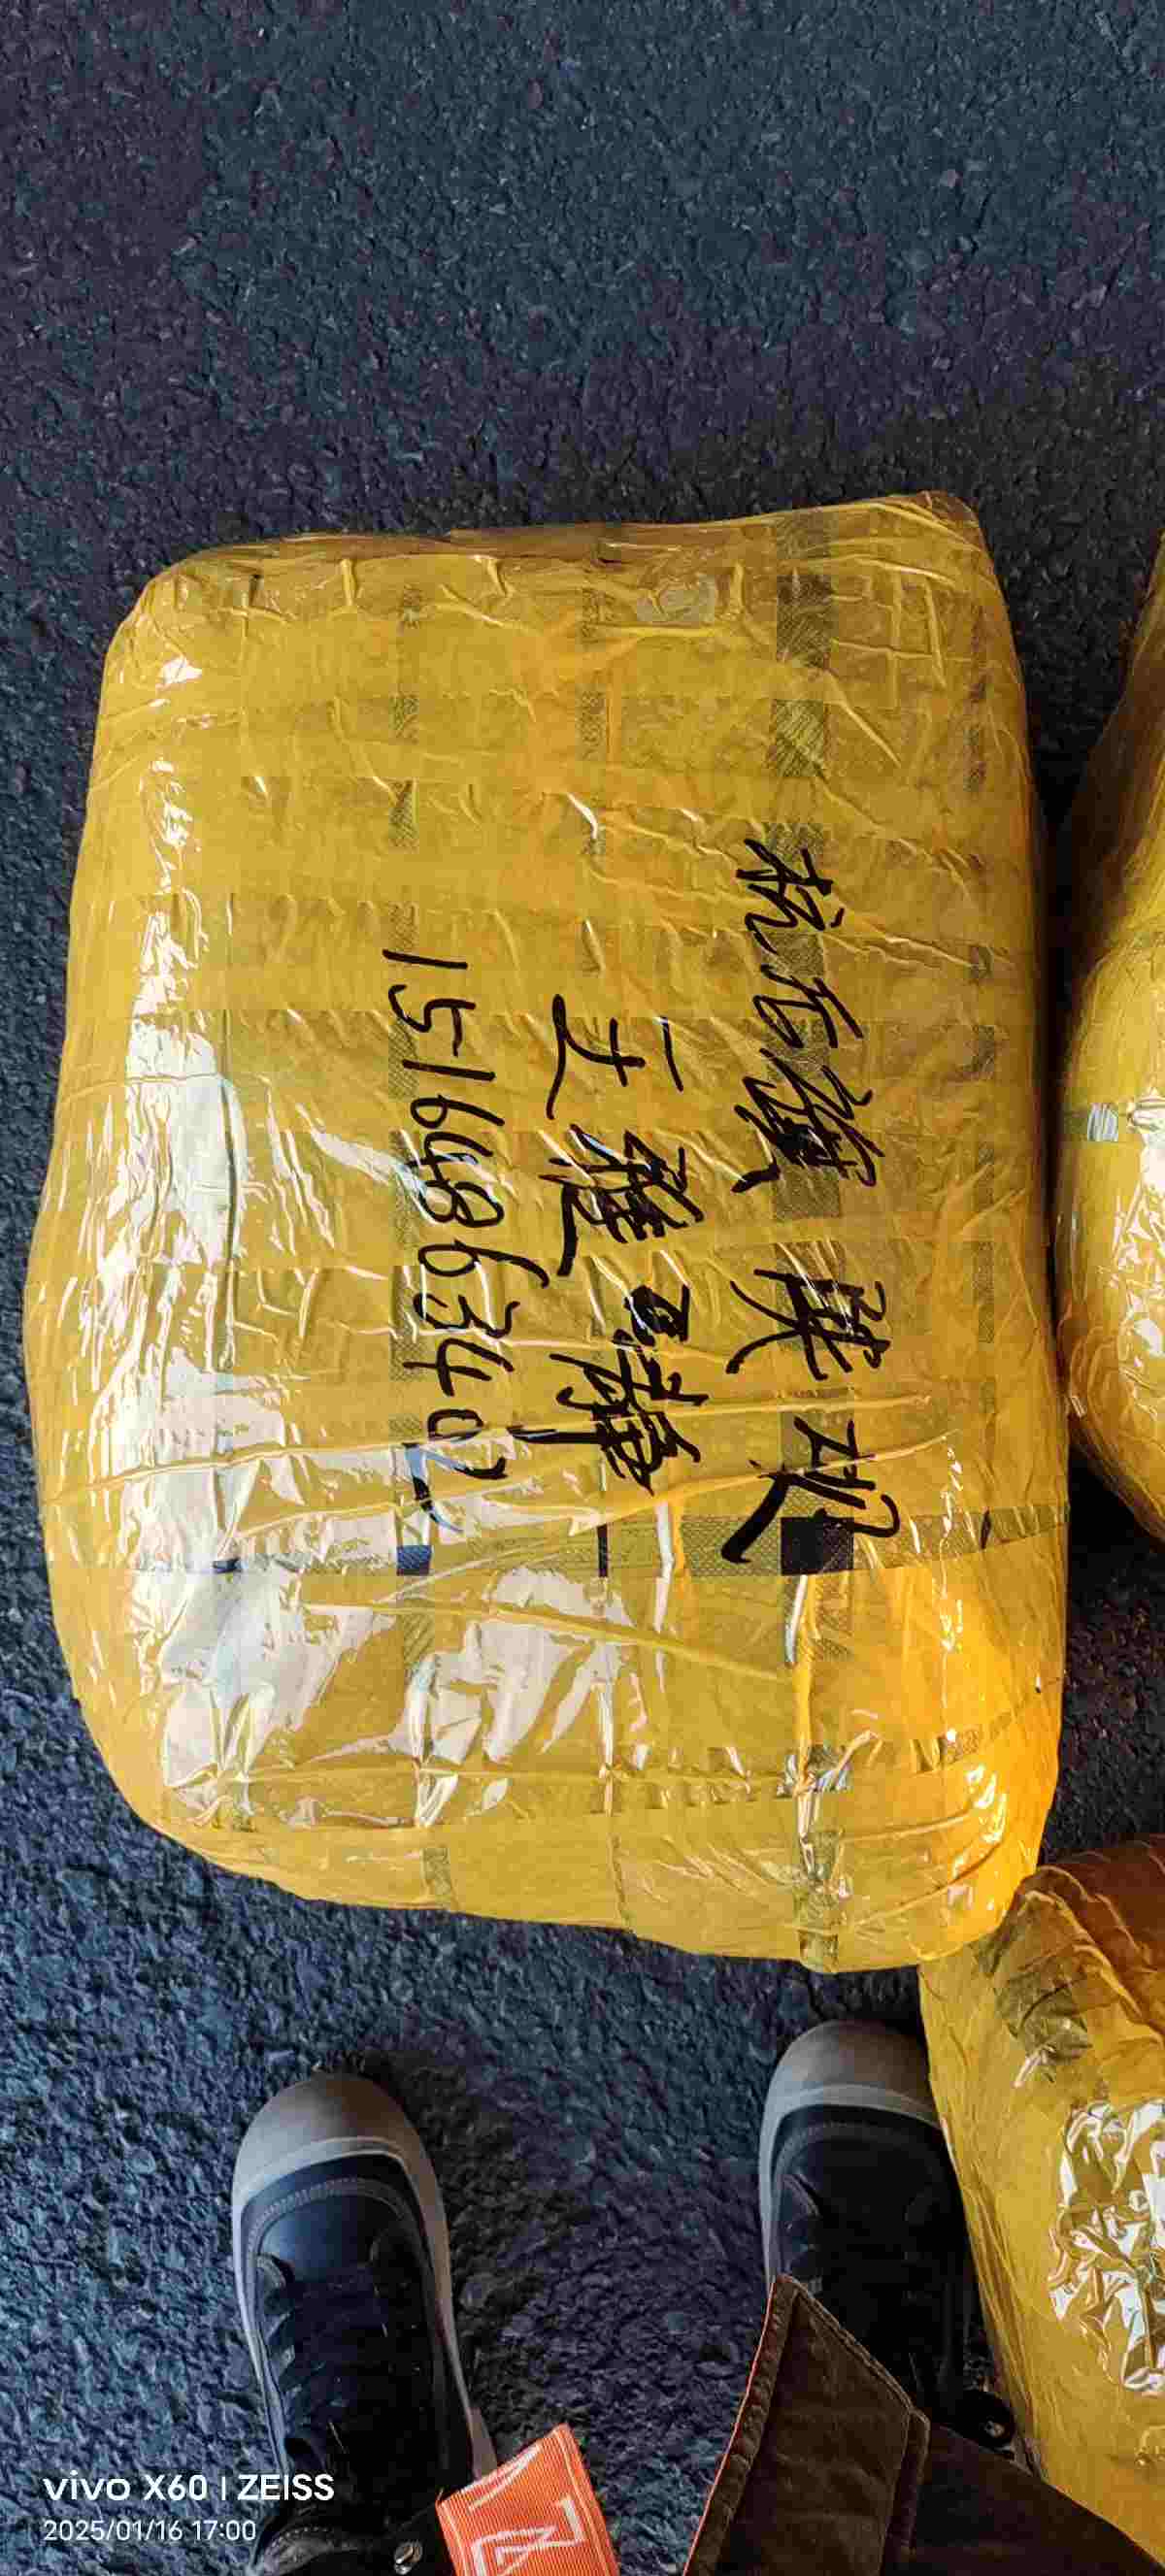 杭后旗 陕坝
王雅
15164863402
vivo X60 | ZEISS
2025/01/16 17:00